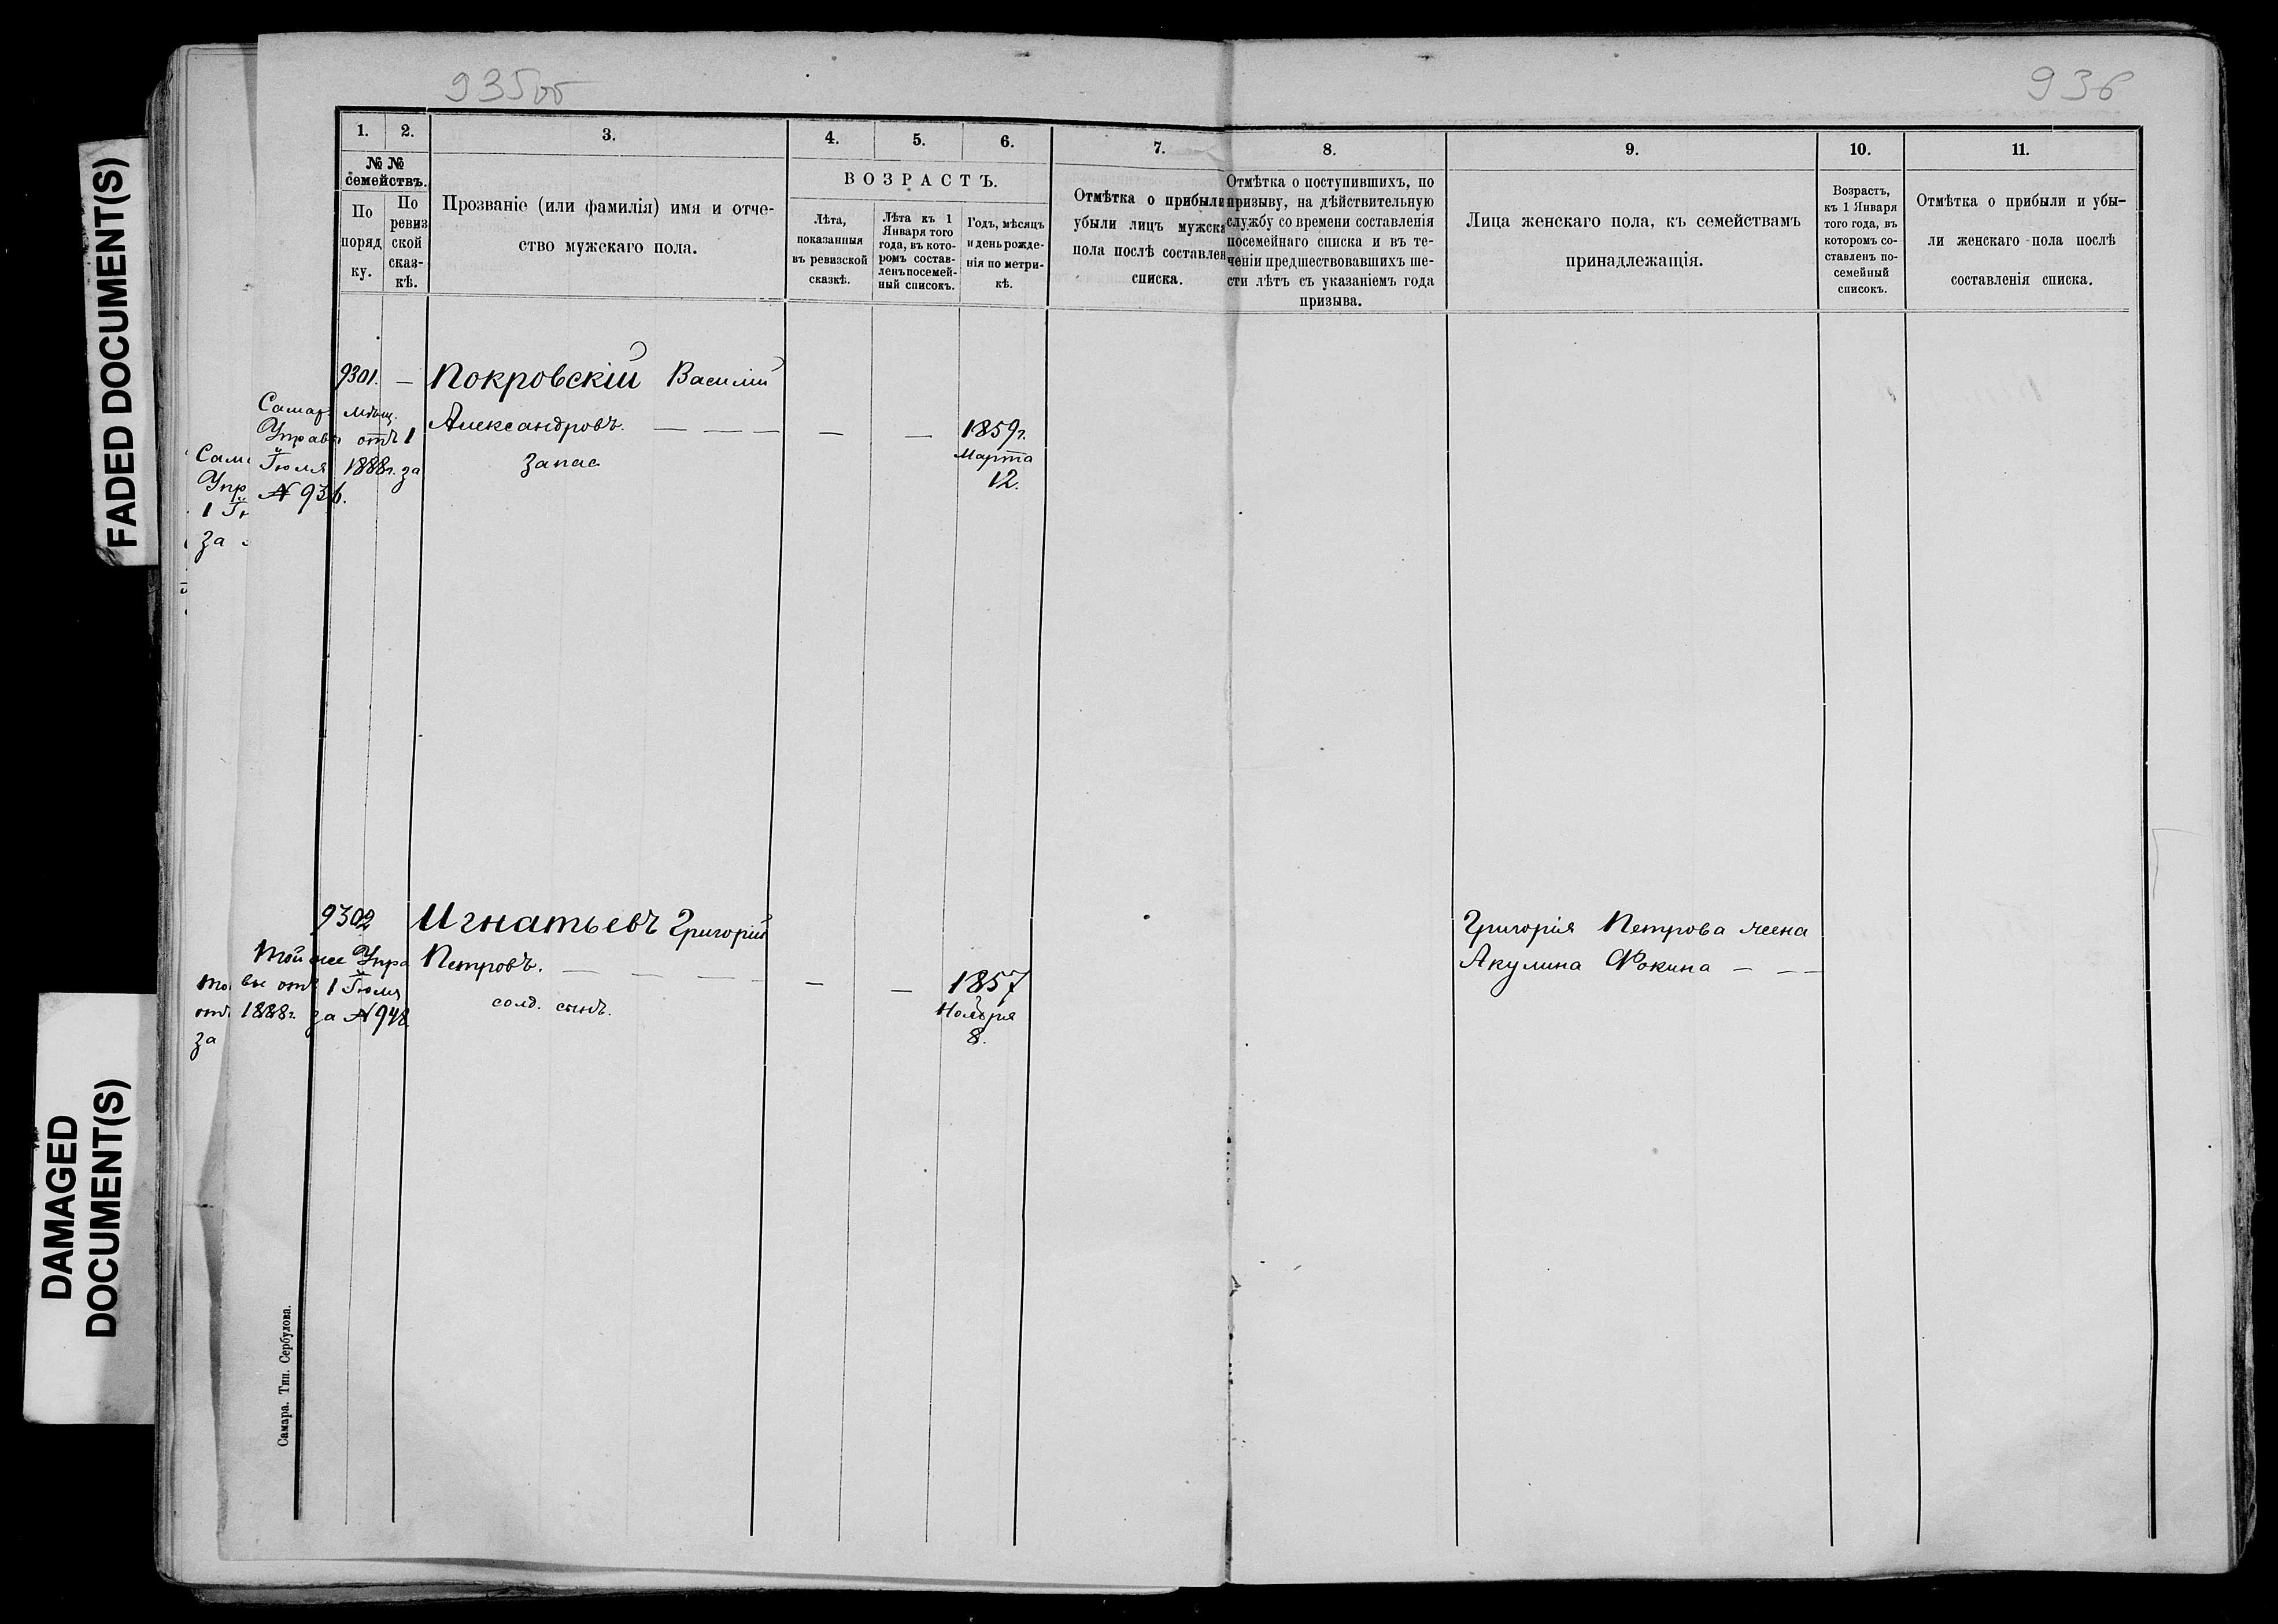 935об
936
FADED DOCUMENT(S)
DAMAGED
DOCUMENT(S)
1.
2.
3.
4.
5.
6.
7.
8.
9.
10.
11.
№ №
семействъ.
По
поряд
ку.
По
ревиз
ской
сказ-
кѣ.
Прозваніе (или фамилія) имя и отче-
ство мужскаго пола.
ВОЗРАСТЪ.
Лѣта,
показанныя
въ ревизской
сказкѣ.
Лѣта къ 1
Января того
года, въ кото-
ромъ состав-
ленъ посемей-
ный списокъ.
Годъ, мѣсяцъ
и день рожде-
нія по метри-
кѣ.
Отмѣтка о прибыли
убыли лицъ мужска
пола послѣ составлен
списка.
Отмѣтка о поступившихъ, по
призыву, на дѣйствительную
службу со времени составленія
посемейнаго списка и въ те-
ченіи предшествовавшихъ ше-
сти лѣтъ съ указаніемъ года
призыва.
Лица женскаго пола, къ семействамъ
принадлежащія.
Возрастъ,
къ 1 Января
того года, въ
которомъ со-
ставленъ по-
семейный
списокъ.
Отмѣтка о прибыли и убы-
ли женскаго пола послѣ
составленія списка.
9301. — Покровскій Василій
Александровъ. — — — — — 1859г.
запас Марта
12.
Самар. Мѣщ.
Управы отъ 1
Іюля 1888г. за
№ 936.
Сам
Упр
1 Ію
за
9302 Игнатьевъ Григорій
Петровъ. — — — — — 1857
солд. сынъ. Ноября
8.
Той же Упра
вы отъ 1 Іюля
1888г. за № 948
То
отъ
за
Григорія Петрова жена
Акулина Фокина — — —
Самара. Тип. Сербулова.